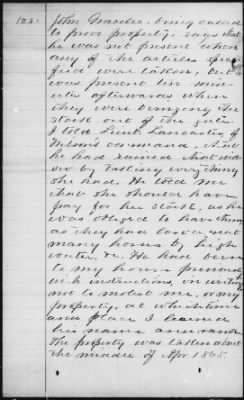 John Chander, being called
to prove property, says that
he was not present when
any of the articles speci
fied were taken, but
was present ten min
utes afterwards when
they were bringing the
stock out of the gate.
I told Lieut. Lancaster, of
Wilson's command, that
he had ruined that wid
ow by taking every thing
she had. He told me
that she should have
pay for her stock, as he
was obliged to have them
as they had lost a great
many horses by high
water, &c. He had been
to my house previous
with instructions, in writing
not to molest me, or my
property, at which time
and place I learned
his name and rank.
The property was taken about
the middle of Apr. 1865.